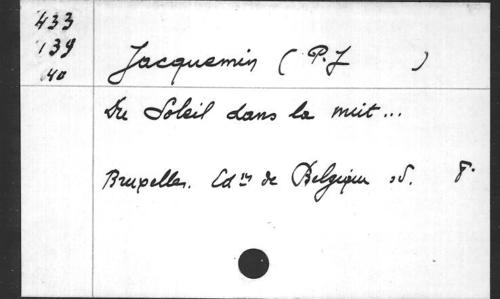 433
139
40
Jacquemin (P. J )
Du Soleil dans la nuit...
Bruxelles. Edns de Belgique sd. 8°